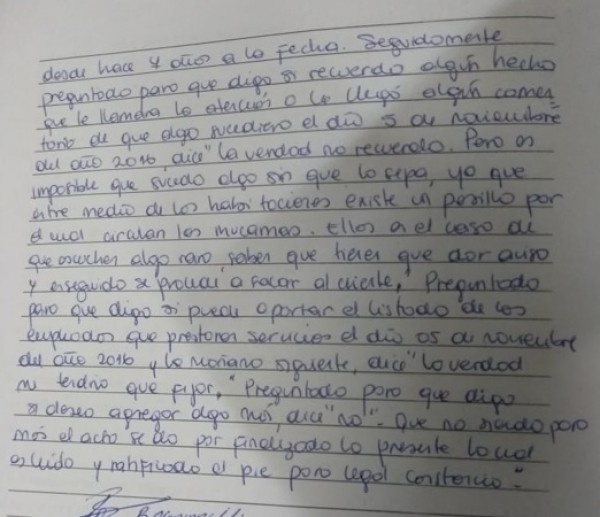 desde hace 4 años a la fecha. Seguidamente
preguntado para que diga si recuerda algún hecho
que le llamara la atención o le llegó algún comen=
tario de que algo sucediera el día 5 de noviembre
del año 2016, dice "la verdad no recuerdo. Pero es
imposible que suceda algo sin que lo sepa, ya que
entre medio de las habitaciones existe un pasillo por
el cual circulan las mucamas. Ellas en el caso de
que escuchen algo raro, saben que tienen que dar aviso
y enseguida se procede a sacar al cliente. Preguntado
para que diga si puede aportar el listado de los
empleados que prestaron servicios el día 05 de noviembre
del año 2016 y la mañana siguiente, dice "la verdad
me tendría que fijar." Preguntado para que diga
si desea agregar algo más, dice "no"-. Que no siendo para
más el acto se da por finalizada la presente la cual
es leída y ratificada al pie para legal constancia.=